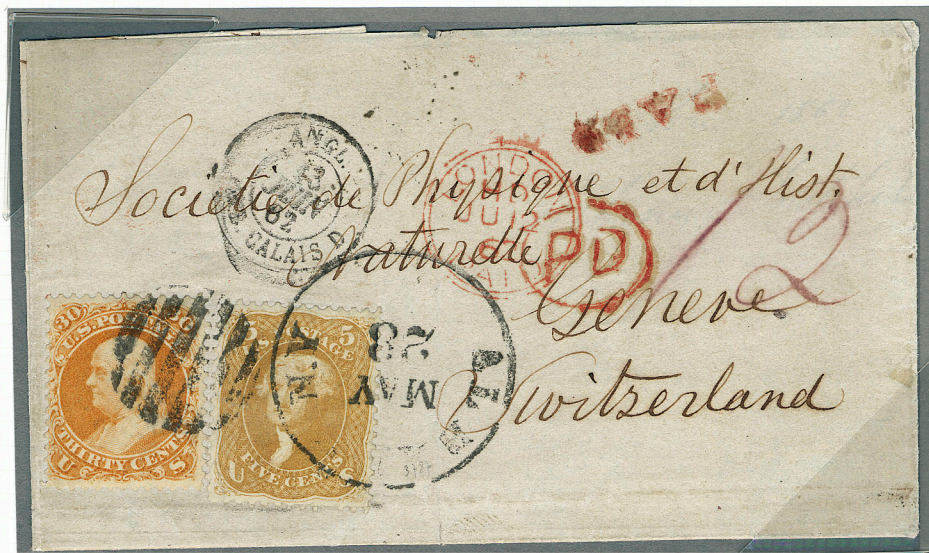 PAID
ANGL.
13
JUIN
62
CALAIS D
LONDON
JU 12
PAID
PD
12
Societie de Physique et d'Hist.
Naturelle
Geneve
Switzerland
30
U.S. PO
THIRTY CENTS
U S
5 5
POSTAGE
U
FIVE CENTS
N.Y.
MAY
28